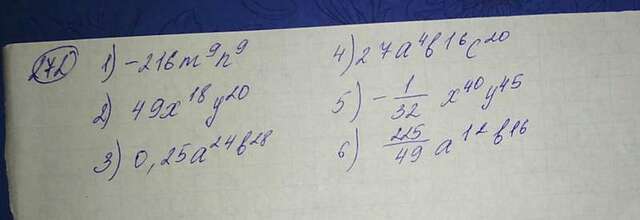 272 1) -216m⁹n⁹
2) 49x¹⁸y²⁰
3) 0,25a²⁴b²⁸
4) 27a⁴b¹⁶c²⁰
5) -1/32 x⁴⁰y⁴⁵
6) 225/49 a¹²b¹⁶